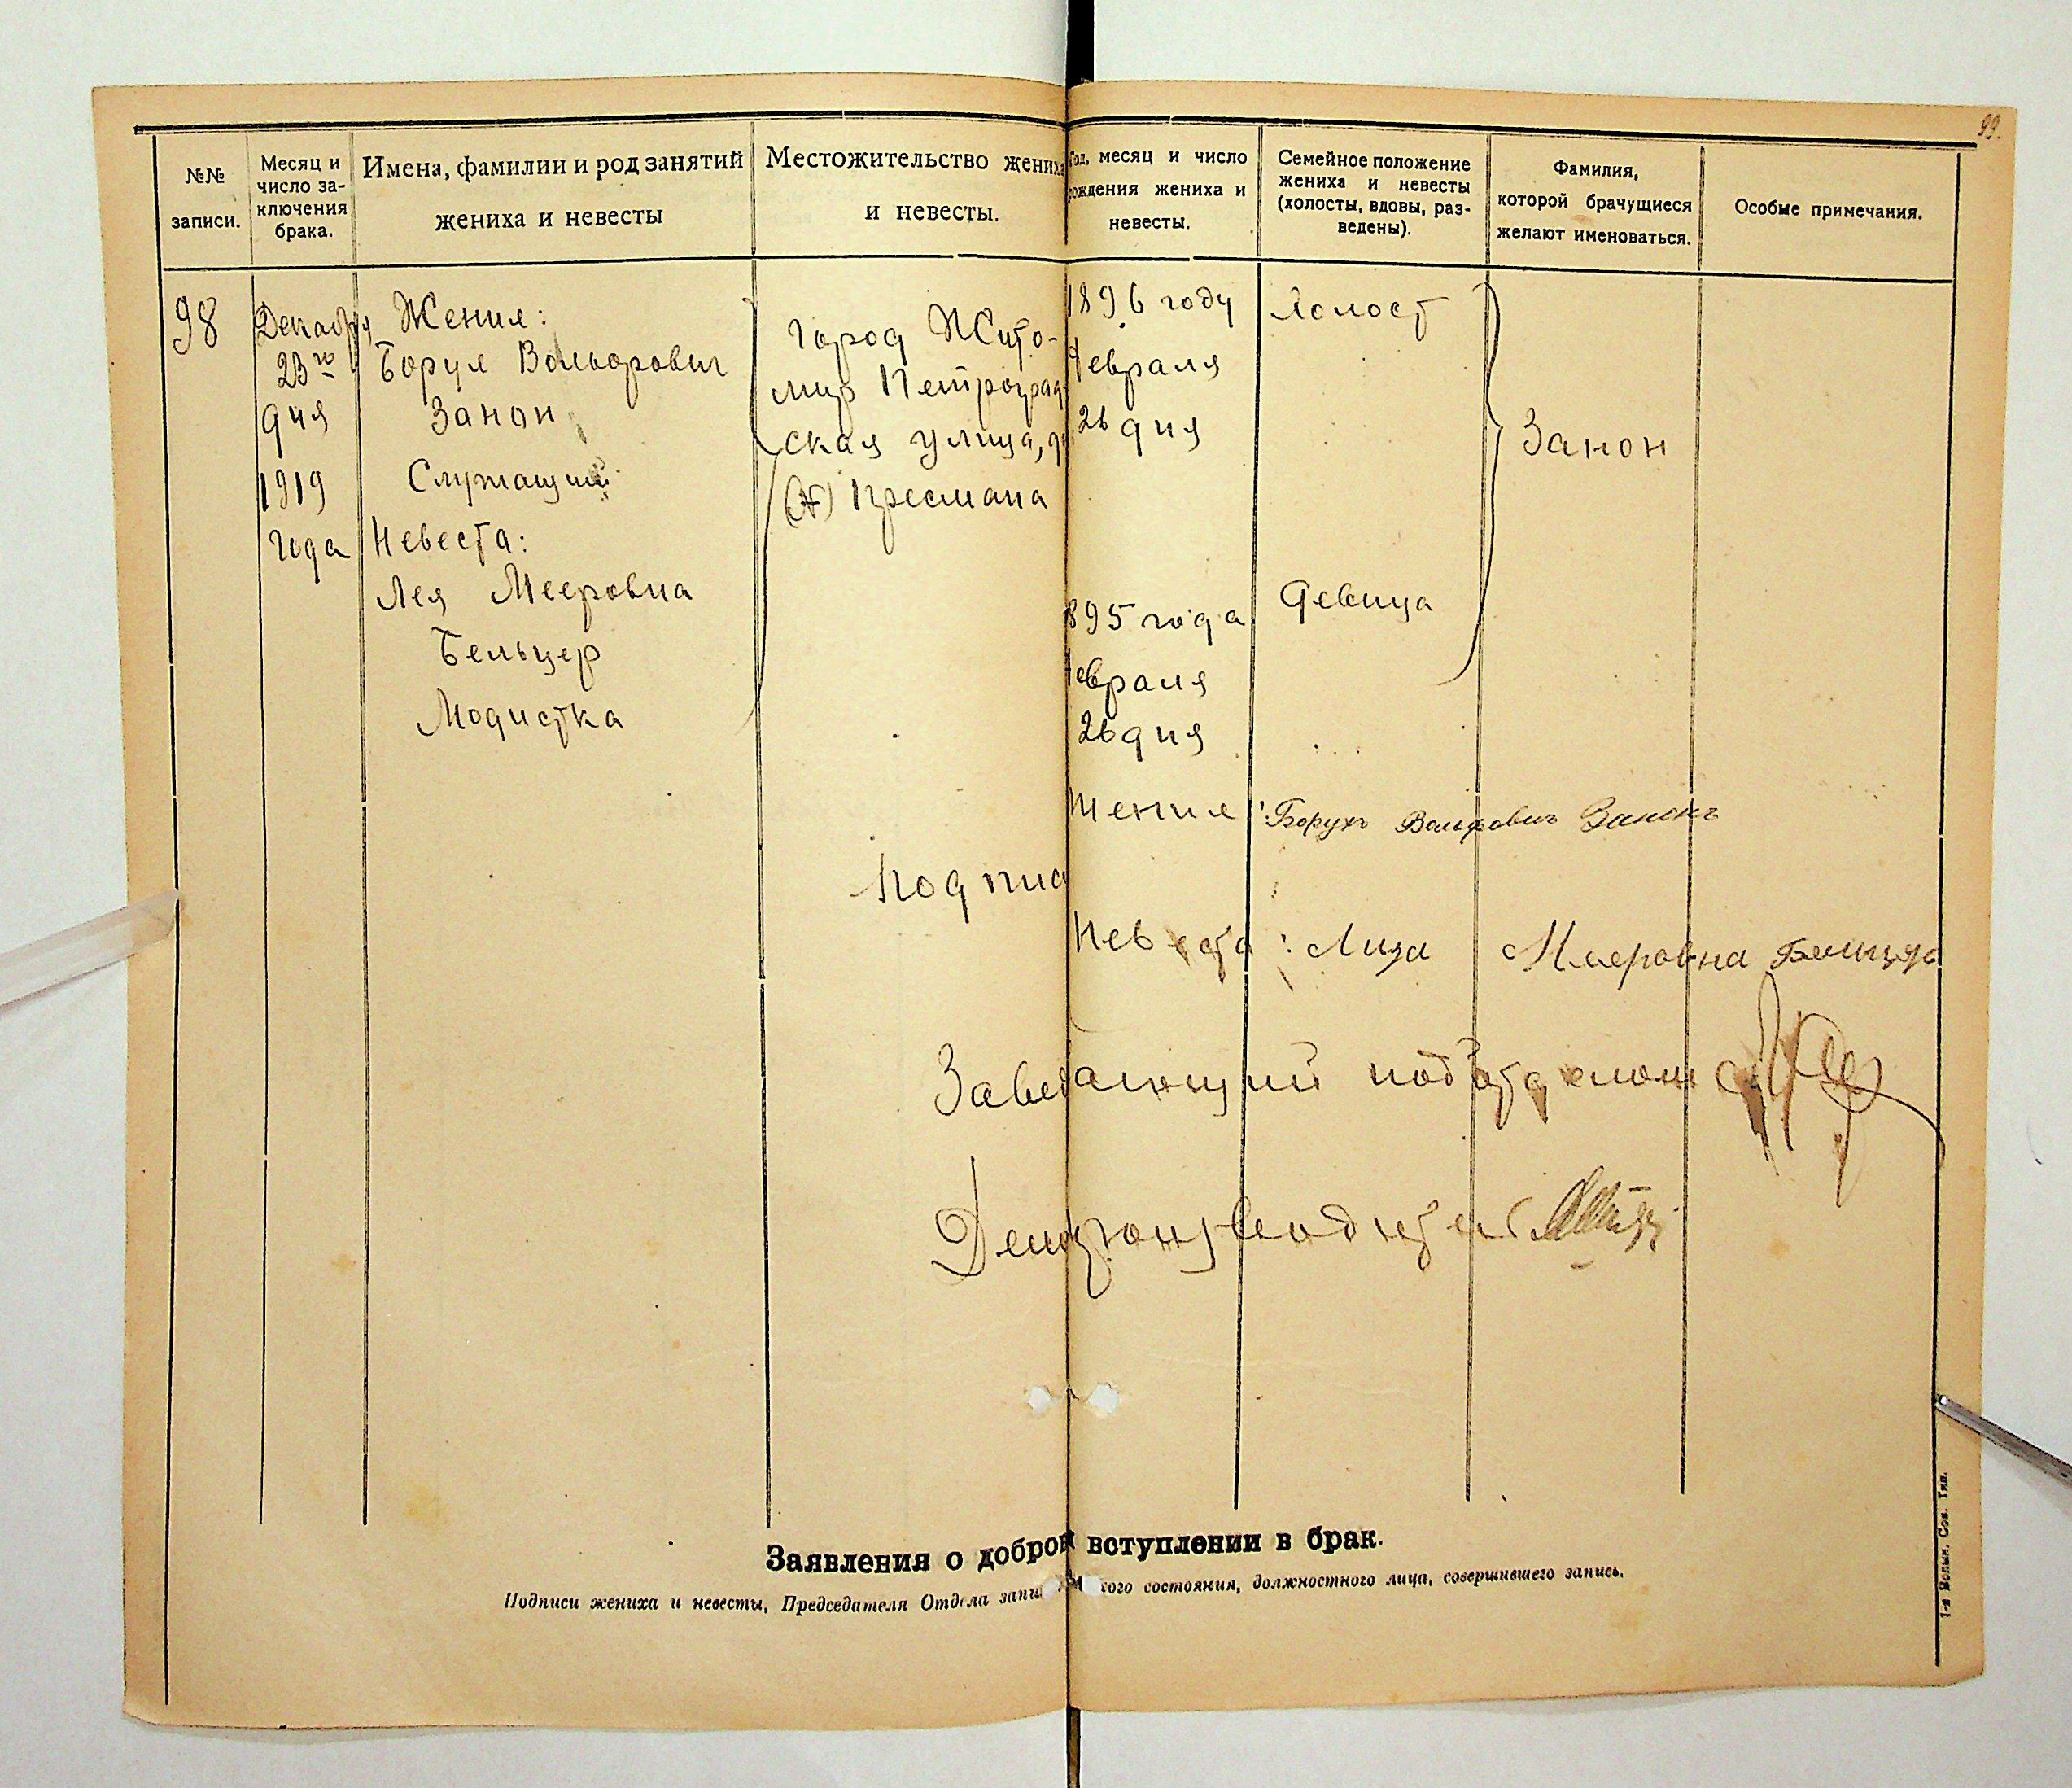 99.
№№ записи.
Месяц и число заключения брака.
Имена, фамилии и род занятий жениха и невесты
Местожительство жениха и невесты.
Год, месяц и число рождения жениха и невесты.
Семейное положение жениха и невесты (холосты, вдовы, разведены).
Фамилия, которой брачущиеся желают именоваться.
Особые примечания.
98
Декабря
23го
дня
1919
года
Жених:
Борух Вольфович
Занон
Служащий
Невеста:
Лея Мееровна
Бельцер
Модистка
город Жито-
мир Петроград-
ская улица,
Пресмана
1896 году
Февраля
26 дня
1895 года
Февраля
26 дня
Холост
Девица
Занон
Подпис
Жених: Борухъ Вольфович Занонъ
Невеста: Лиза Мееровна Бельцер
Заведающий подотделом
Делопроизводител
Заявления о доброй вступлении в брак.
Подписи жениха и невесты, Председателя Отдела состояния, должностного лица, совершившего запись.
1-я Волын. Сов. Тип.